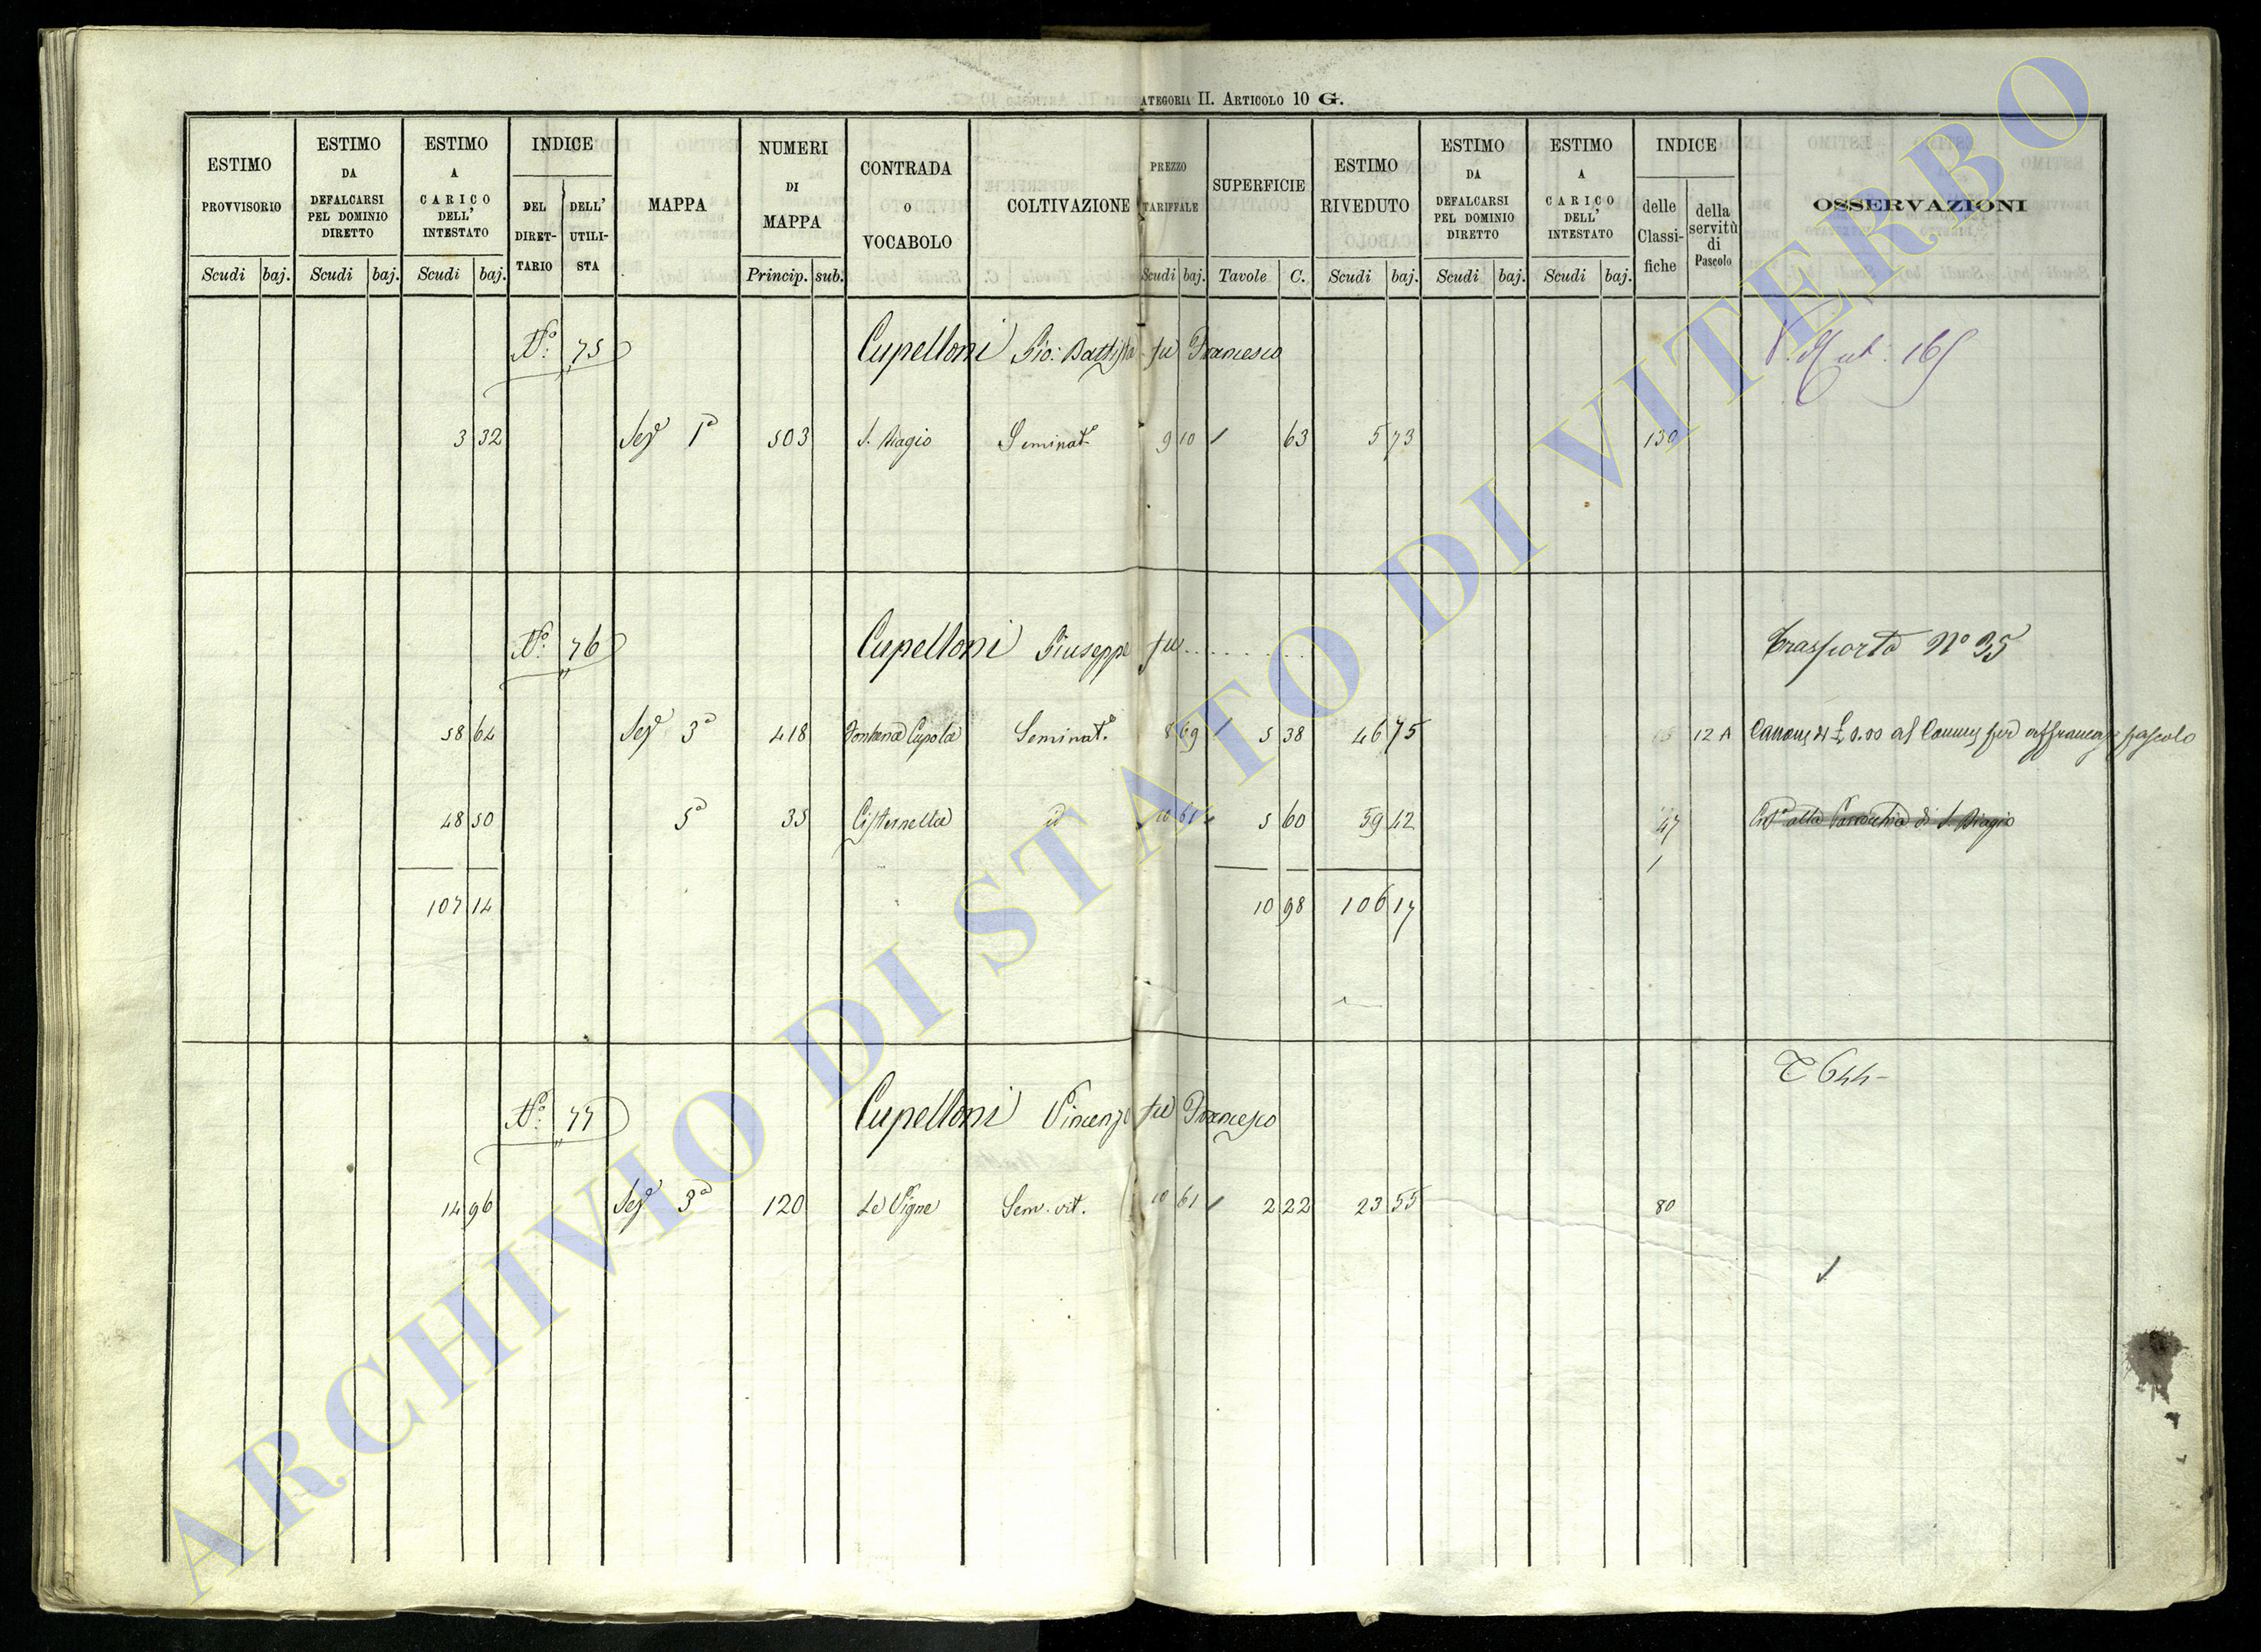 ATEGORIA II. ARTICOLO 10 G.
ESTIMO PROVVISORIO Scudi baj.
ESTIMO DA DEFALCARSI PEL DOMINIO DIRETTO Scudi baj.
ESTIMO A CARICO DELL' INTESTATO Scudi baj.
INDICE DEL DIRETTARIO DELL' UTILISTA
MAPPA
NUMERI DI MAPPA Princip. sub.
CONTRADA O VOCABOLO
COLTIVAZIONE
PREZZO TARIFFALE Scudi baj.
SUPERFICIE Tavole C.
ESTIMO RIVEDUTO Scudi baj.
ESTIMO DA DEFALCARSI PEL DOMINIO DIRETTO Scudi baj.
ESTIMO A CARICO DELL' INTESTATO Scudi baj.
INDICE delle Classifiche della servitù di Pascolo
OSSERVAZIONI
No. 75 Cupelloni Gio: Battista fu Francesco 165
3 32 Sez 1a 503 S. Biagio Seminato 9 10 63 5 73 130
No. 76 Cupelloni Giuseppe fu.......... Trasporto No 35
58 64 Sez 3a 418 Fontana Cupola Seminato 8 69 5 38 46 75 12 A
48 50 5a 35 Cisternella id 10 61 5 60 59 42 47 alla Parrochia di S. Biagio
107 14 10 98 106 17
T 644
No. 77 Cupelloni Vincenzo fu Francesco
14 96 Sez 3a 120 Le Vigne Sem. vit. 10 61 2 22 23 55 80
ARCHIVIO DI STATO DI VITERBO